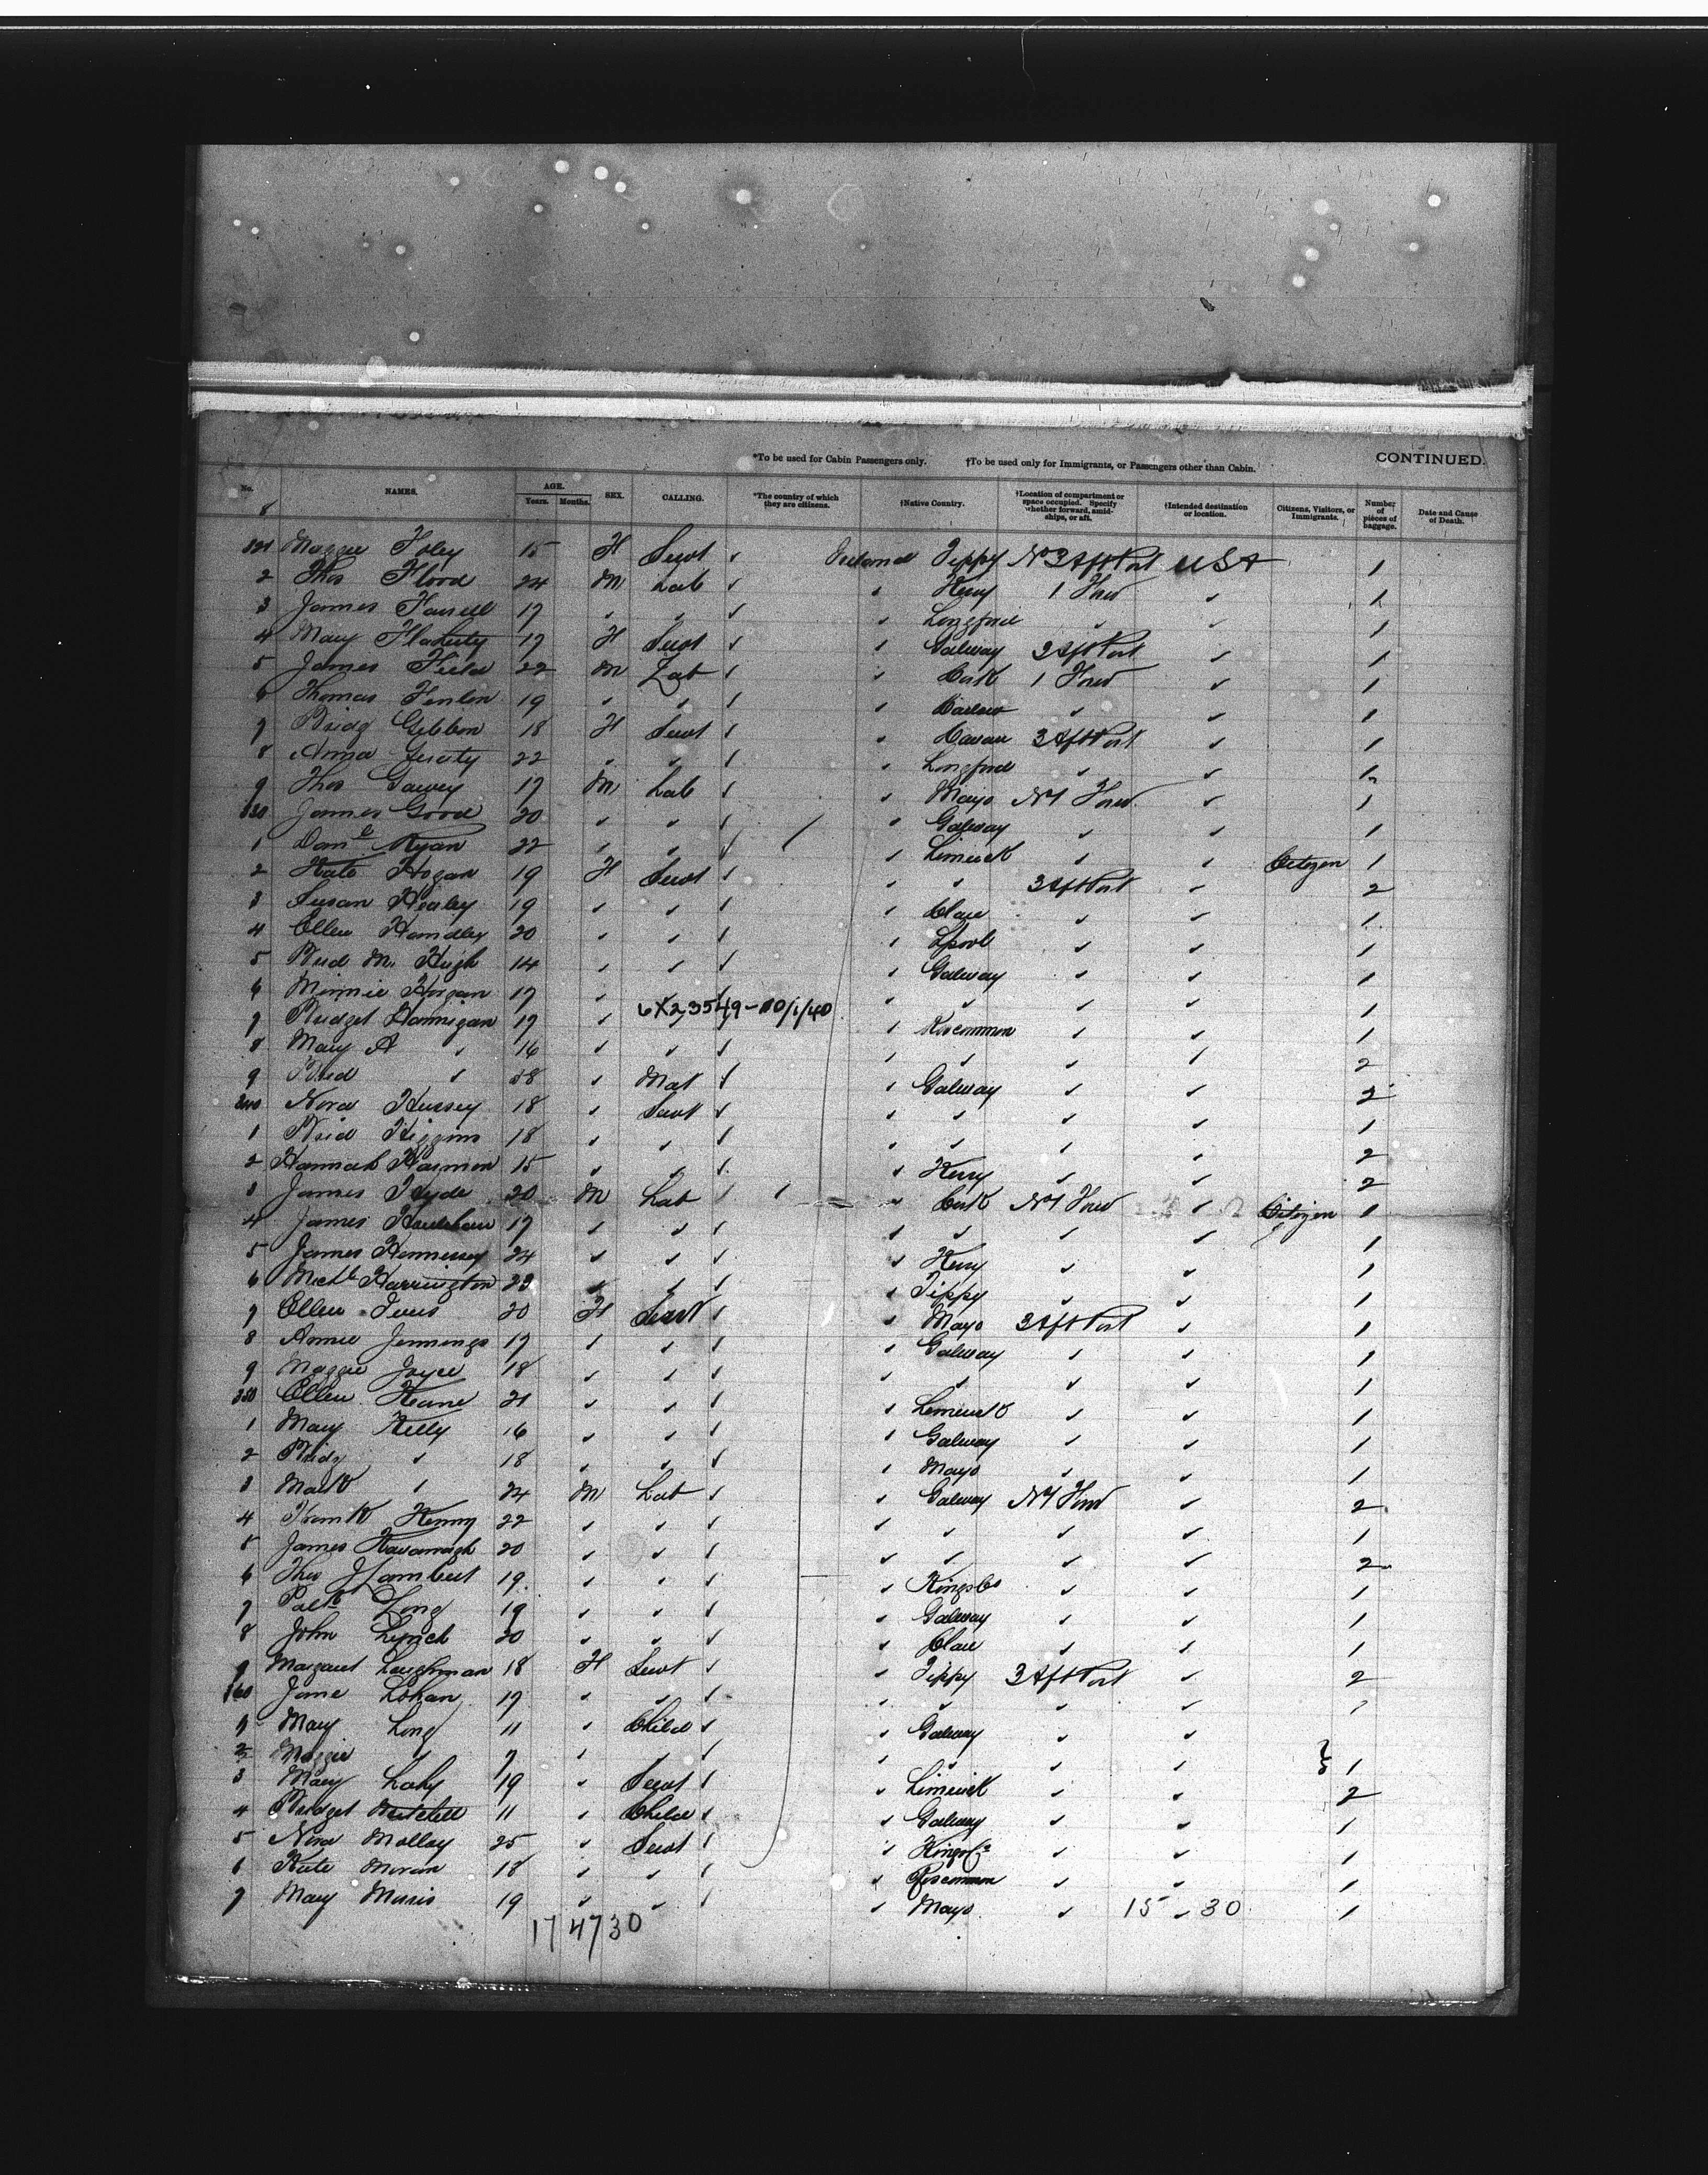 *To be used for Cabin Passengers only. †To be used only for Immigrants, or Passengers other than Cabin. CONTINUED.
No. NAMES. AGE. Years. Months. SEX. CALLING. *The country of which they are citizens. †Native Country. †Location of compartment or space occupied. Specify whether forward, amidships, or aft. †Intended destination or location. Citizens, Visitors, or Immigrants. Number of pieces of baggage. Date and Cause of Death.
Maggie Foley 15 F Servt Ireland Tippy No 3 Aft Port USA 1
2 Thos Flood 24 M Lab Kerry 1 Forwd 1
3 James Farrell 17 Longford 1
4 Mary Flaherty 17 F Servt Galway 3 Aft Port 1
5 James Field 22 M Lab Cork 1 Forwd 1
6 Thomas Fenlon 19 Carlow 1
7 Bridg Gibbon 18 F Servt Cavan 3 Aft Port 1
8 Anna Gerity 22 Longford
9 Thos Garvey 17 M Lab Mayo No 1 Forwd 1
330 James Good 20 Galway 1
1 Danl Ryan 22 Limerick Citizen 1
2 Kate Hogan 19 F Servt 3 Aft Port 2
3 Susan Healey 19 Clare 1
4 Ellen Handley 20 Lpool 1
5 Brid Mc Hugh 14 Galway 1
6 Minnie Horgan 17 1
6X23549-10/1/40
7 Bridget Hannigan 17 Roscommon 1
8 Mary A 16 2
9 Brid 58 Mat Galway 2
340 Nora Hussey 18 Servt 1
1 Brid Higgins 18 2
2 Hannah Harmon 15 Kerry 2
3 James Hyde 20 M Lab Cork No 1 Forwd Citizen 1
4 James 17 1
5 James Hennessey 24 Kerry 1
6 Michl Harrington 23 Tippy 1
7 Ellen Ivers 20 F Servt Mayo 3 Aft Port 1
8 Annie Jennings 17 Galway 1
9 Maggie Joyce 18 1
350 Ellen Keane 21 Limerick 1
1 Mary Kelly 16 Galway 1
2 Bridg 18 Mayo 1
3 Mark 24 M Lab Galway No 1 Forwd 2
4 Frank Kenny 22 1
5 James Kavanagh 20 2
6 Thos J Lambert 19 Kings Co 1
7 Patk Long 19 Galway 1
8 John Lynch 20 Clare 1
9 Margaret Loughman 18 F Servt Tippy 3 Aft Port 2
360 Jane Lohan 17 1
1 Mary Long 11 Child Galway
2 Maggie 7 1
3 Mary Lahy 19 Servt Limerick 2
4 Bridget Mitchell 11 Child Galway 1
5 Nora Molloy 25 Servt Kings Co 1
6 Kate Moran 18 Roscommon 1
7 Mary Morris 19 Mayo 15 - 30 1
17/4730